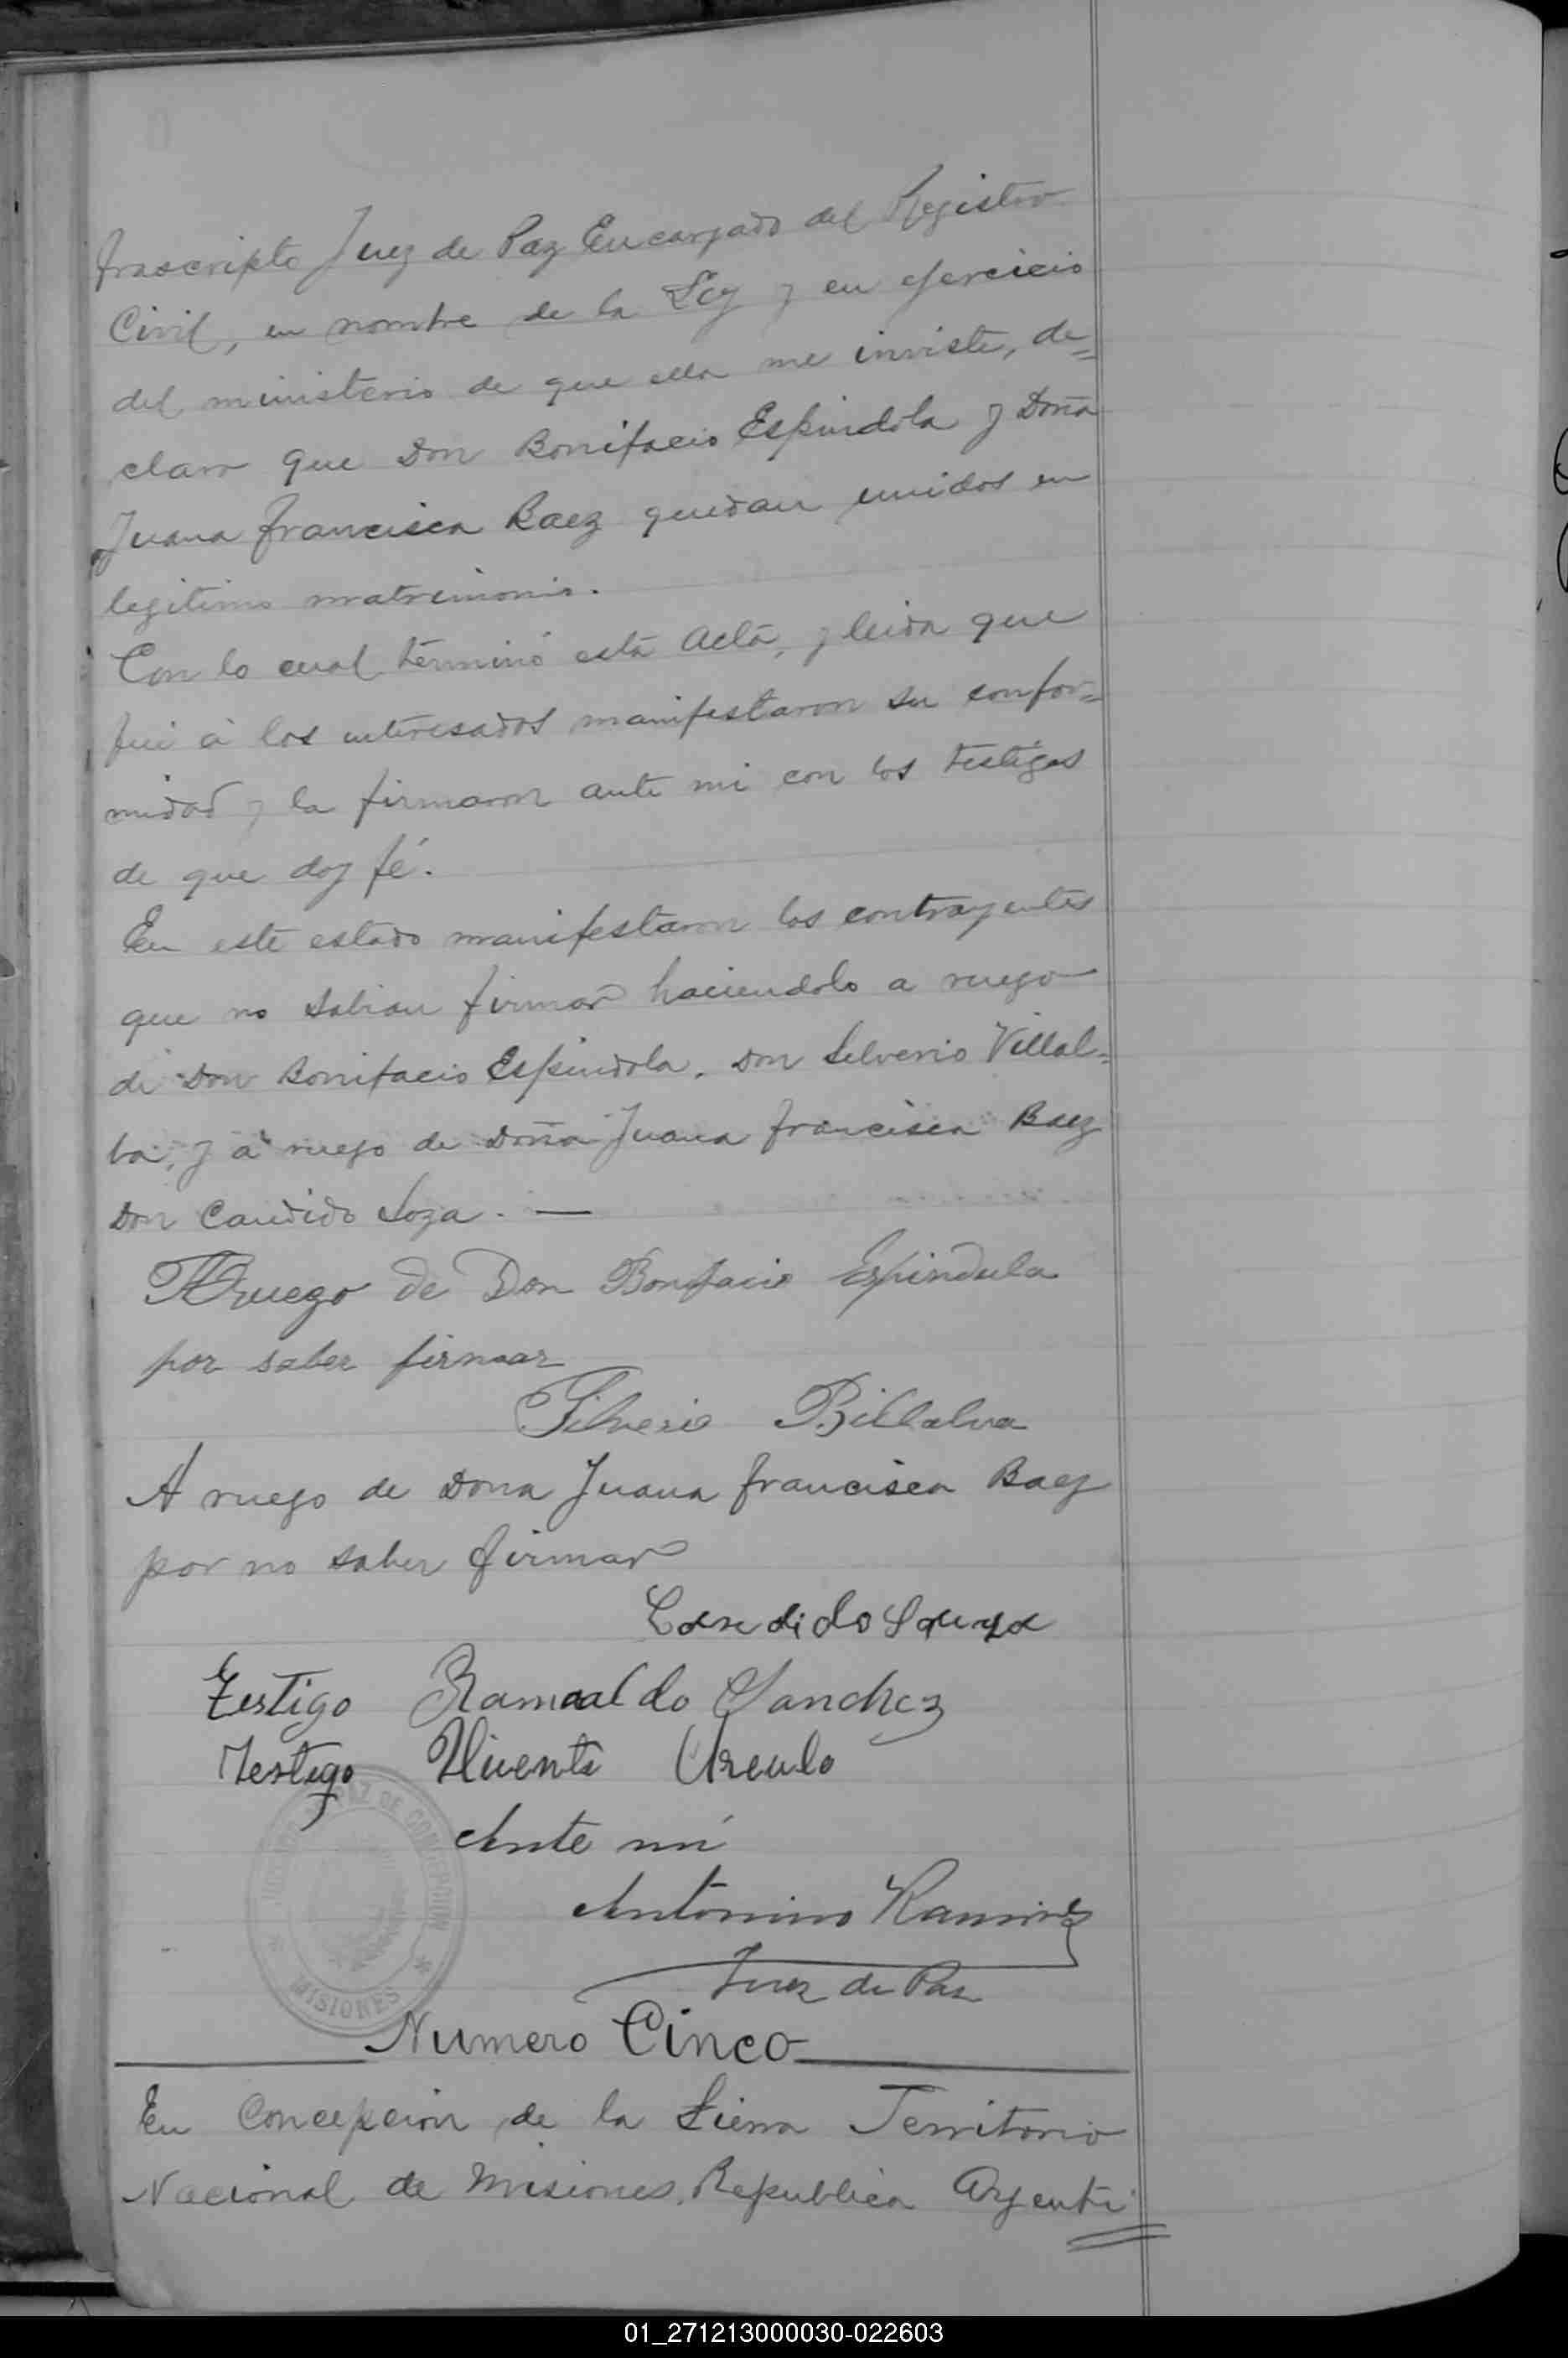 frascripto Juez de Paz Encargado del Registro
Civil, en nombre de la Ley y en ejercicio
del ministerio de que ella me inviste, de=
claro que Don Bonifacio Espindola y Doña
Juana Francisca Baez quedan unidos en
legitimo matrimonio.
Con lo cual terminó esta Acta, y leida que
fué á los interesados manifestaron su confor=
midad y la firmaron ante mi con los testigos
de que doy fé.
En este estado manifestaron los contrayentes
que no sabian firmar haciendolo a ruego
de Don Bonifacio Espindola, Don Silverio Villal=
ba, y á ruego de Doña Juana Francisca Baez
Don Candido Soza. —
A Ruego de Don Bonifacio Espindula
por saber firmar
Silverio Billalva
A ruego de Dona Juana Francisca Baez
por no saber firmar
Candido Souza
Testigo Ramualdo Sanchez
Testigo Vicente Urculo
Ante mí
Antonino Ramirez
Juez de Paz
JUZGADO DE PAZ DE CONCEPCION
* MISIONES *
Numero Cinco
En Concepcion de la Sierra Territorio
Nacional de Misiones, Republica Argenti
01_271213000030-022603